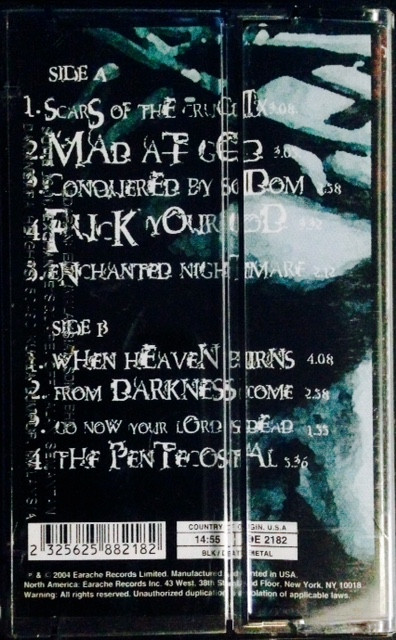 SIDE A
1. SCARS OF THE CRUCIFIX 3.08
2. MAD AT GOD
3. CONQUERED BY SODOM
4. FUCK YOUR GOD
5. ENCHANTED NIGHTMARE
SIDE B
1. WHEN HEAVEN BURNS 4.08
2. FROM DARKNESS COME 2.58
3. GO NOW YOUR LORD IS DEAD 1.55
4. THE PENTECOSTAL 5.36
2 325625 882182
COUNTRY OF ORIGIN. U.S.A
14:55 DE 2182
BLK/DEATH METAL
℗ & © 2004 Earache Records Limited. Manufactured and printed in USA.
North America: Earache Records Inc. 43 West. 38th Street, 2nd Floor, New York, NY 10018
Warning: All rights reserved. Unauthorized duplication is a violation of applicable laws.